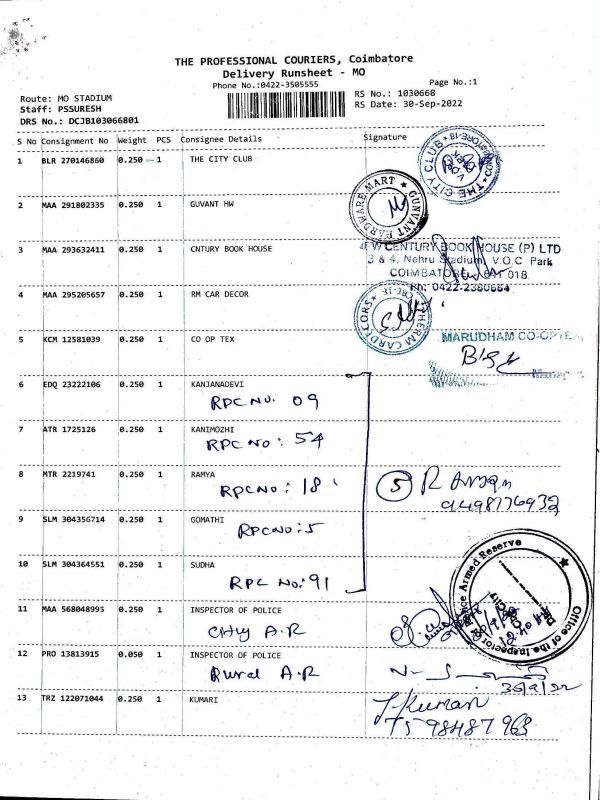 THE PROFESSIONAL COURIERS, Coimbatore
Delivery Runsheet - MO
Phone No.:0422-3505555
Page No.:1
Route: MO STADIUM
RS No.: 1030668
Staff: PSSURESH
RS Date: 30-Sep-2022
DRS No.: DCJB103066801
S No Consignment No Weight PCS Consignee Details Signature
1 BLR 270146860 0.250 1 THE CITY CLUB
THE CITY CLUB
2 MAA 291802335 0.250 1 GUVANT HW
GUNVANT HARDWARE MART
3 MAA 293632411 0.250 1 CNTURY BOOK HOUSE
NEW CENTURY BOOK HOUSE (P) LTD
3 & 4, Nehru Stadium, V.O.C. Park
COIMBATORE 641 018.
Ph: 0422-2380554
4 MAA 295205657 0.250 1 RM CAR DECOR
CAR DECORS
5 KCM 12581039 0.250 1 CO OP TEX
MARUDHAM CO-OPTEX
6 EDQ 23222106 0.250 1 KANJANADEVI
RPC NO. 09
7 ATR 1725126 0.250 1 KANIMOZHI
RPC NO: 54
8 MTR 2219741 0.250 1 RAMYA
RPC NO: 18
5
9498776932
9 SLM 304356714 0.250 1 GOMATHI
RPC NO: 5
10 SLM 304364551 0.250 1 SUDHA
RPC NO: 91
11 MAA 568048995 0.250 1 INSPECTOR OF POLICE
City A.R
Office of the Inspector of Police Armed Reserve
12 PRO 13813915 0.050 1 INSPECTOR OF POLICE
Rural A.R
30/9/22
13 TRZ 122071044 0.250 1 KUMARI
J Kumari
7598487963